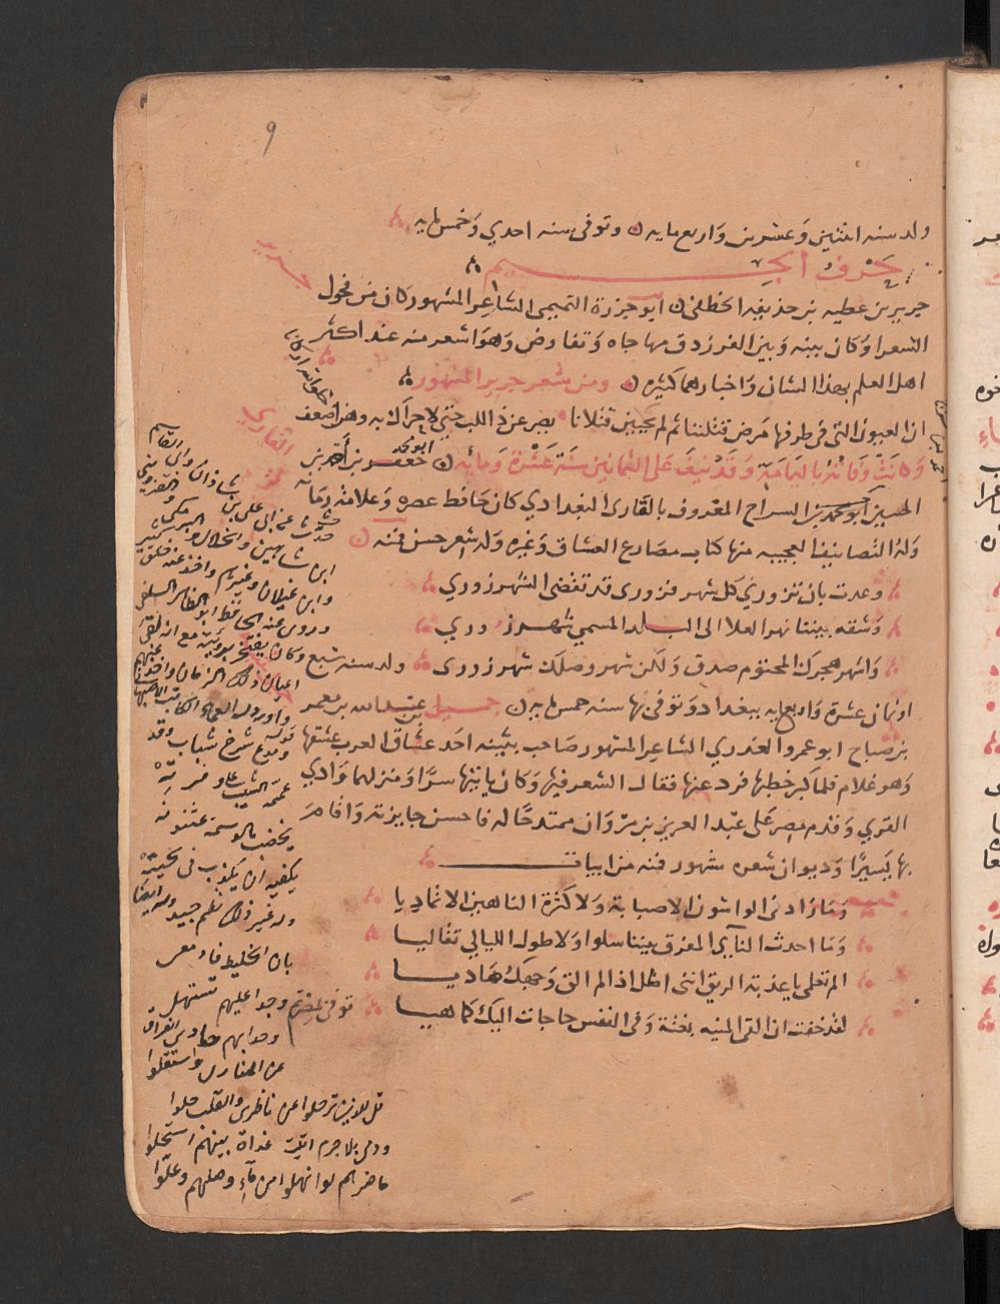 9
ولد سنه اثنتين وعشرين واربع مايه وتوفى سنه احدي وخمس مايه
حرف الجيم
جرير
جرير بن عطيه بن حذيفه الخطفى ابو حزرة التميمى الشاعر المشهور كان من فحول
الشعرا وكان بينه وبين الفرزدق مهاجاه وتفاوض وهو اشعر منه عند اكثر
اهل العلم بهذا الشان واخبارهما كثيره ومن شعر جرير المشهور
ان العيون التى فى طرفها مرض قتلننا ثم لم يحيين قتلانا يصرعن ذا اللب حتى لا حراك به وهن اضعف
خلق الله اركانا
وكانت وفاته باليمامة وقد نيف على الثمانين سنة عشرة ومايه جعفر بن احمد بن
ابو محمد
القارى
الحسين ابو محمد بن السراج المعروف بالقارى البغدادي كان حافظ عصره وعلامة زمانه
وله التصانيف العجيبه منها كتاب مصارع العشاق وغيره وله شعر حسن فمنه
وعدت بان تزوري كل شهر فزورى قد تقضى الشهر زوري
وشقه بيننا نهر المعلا الى البلد المسمي شهرزوري
واشهر هجرك المحتوم صدق ولكن شهر وصلك شهر زورى ولد سنه سبع
او ثمان عشرة واربعمايه ببغداد وتوفى بها سنه خمس مايه جميل بن عبد الله بن معمر
بن صباح ابو عمرو العذري الشاعر المشهور صاحب بثينه احد عشاق العرب عشقها
وهو غلام فلما كبر خطبها فرد عنها فقال الشعر فيها وكان ياتيها سرا ومنزلهما وادي
القري وقدم مصر على عبد العزيز بن مروان ممتدحا له فاحسن جايزته واقام
بها يسيرا وديوان شعره مشهور فمنه من ابيات
وما زادنى الواشون الا صبابة ولا كثرة الناهين الا تماديا
وما احدث النأي المفرق بيننا سلوا ولا طول الليالي تقاليا
الم تعلمى يا عذبة الريق اننى اظل اذا لم الق وجهك صاديا
لقد خفت ان القى المنيه بغتة وفى النفس حاجات اليك كما هيا
توفى بمصر
حدث عن ابى على بن شاذان وابى القاسم
ابن شاهين والخلال والبرمكى والقزوينى
وابن غيلان وغيرهم واخذ عنه خلق كثير
وروى عنه الحافظ ابو الطاهر السلفى
وكان يفتخر برويته مع انه لقى
اعيان ذلك الزمان واخذ عنهم
واورد له العماد الكاتب الاصبهانى
قوله
ومدع شرخ شباب وقد
عممه الشيب على وفرته
يخضب بالوسمة عثنونه
يكفيه ان يكذب فى لحيته
وله غير ذلك نظم جيد وله ايضا
بان الخليط فادمعى
وجدا عليهم تستهل
وحدا بهم حادى الفراق
عن المنازل واستقلوا
قل للذين ترحلوا عن ناظرى والقلب حلوا
ودمى بلا جرم اتيت غداة بينهم استحلوا
ما ضرهم لو انهلوا من ماء وصلهم وعلوا